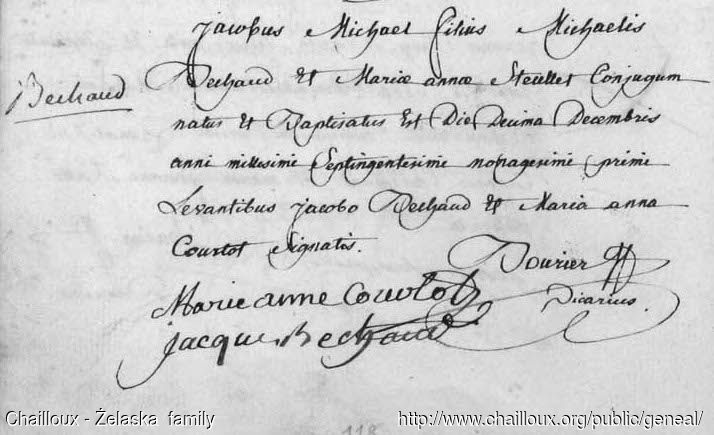 Jacobus Michael filius Michaelis
Bechaud
Bechaud et Mariæ annæ Steullet Conjugum
natus et Baptisatus Est Die Decima Decembris
anni millesimi Septingentesimi nonagesimi primi
Levantibus jacobo Bechaud et Maria anna
Courtot Signatis.
Bourier
Vicarius.
Marie anne Courtot
jacque Bechaud
118
Chailloux - Żelaska family
http://www.chailloux.org/public/geneal/